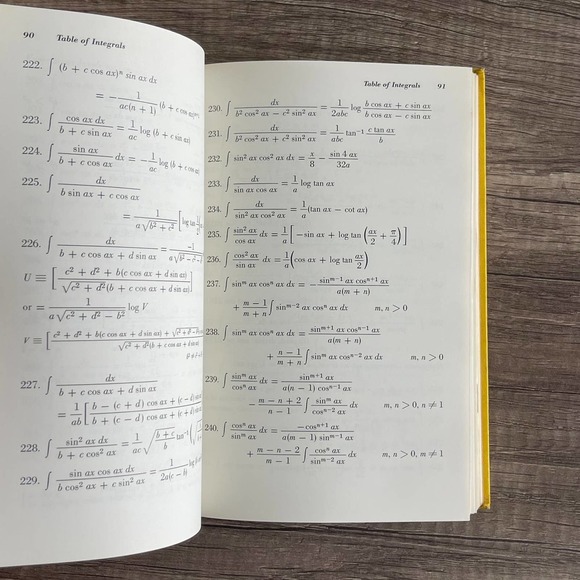 90 Table of Integrals
222. ∫ (b + c cos ax)ⁿ sin ax dx
= − 1/(ac(n + 1)) (b + c cos ax)
223. ∫ (cos ax dx)/(b + c sin ax) = 1/(ac) log (b + c sin ax)
224. ∫ (sin ax)/(b + c cos ax) dx = − 1/(ac) log (b + c cos
225. ∫ dx/(b sin ax + c cos ax)
= 1/(a√(b² + c²)) [log tan
226. ∫ dx/(b + c cos ax + d sin ax) = −1/(a√(b² − c² −
U ≡ [(c² + d² + b(c cos ax + d sin ax))/(√(c² + d²)(b + c cos ax + d sin ax))]
or = 1/(a√(c² + d² − b²)) log V
V ≡ [(c² + d² + b(c cos ax + d sin ax) + √(c² + d² − b²)/(√(c² + d²)(b + c cos ax + d sin ax)
227. ∫ dx/(b + c cos ax + d sin ax)
= 1/(ab) [(b − (c + d) cos ax + (c − d) sin/(b + (c − d) cos ax + (c + d) sin
228. ∫ (sin² ax dx)/(b + c cos² ax) = 1/(ac) √((b + c)/b) tan⁻¹
229. ∫ (sin ax cos ax dx)/(b cos² ax + c sin² ax) = 1/(2a(c − b)) log
Table of Integrals 91
230. ∫ dx/(b² cos² ax − c² sin² ax) = 1/(2abc) log (b cos ax + c sin ax)/(b cos ax − c sin ax)
231. ∫ dx/(b² cos² ax + c² sin² ax) = 1/(abc) tan⁻¹ (c tan ax)/b
232. ∫ sin² ax cos² ax dx = x/8 − (sin 4 ax)/(32a)
233. ∫ dx/(sin ax cos ax) = 1/a log tan ax
234. ∫ dx/(sin² ax cos² ax) = 1/a (tan ax − cot ax)
235. ∫ (sin² ax)/(cos ax) dx = 1/a [− sin ax + log tan (ax/2 + π/4)]
236. ∫ (cos² ax)/(sin ax) dx = 1/a (cos ax + log tan ax/2)
237. ∫ sinᵐ ax cosⁿ ax dx = − (sinᵐ⁻¹ ax cosⁿ⁺¹ ax)/(a(m + n))
+ (m − 1)/(m + n) ∫ sinᵐ⁻² ax cosⁿ ax dx m, n > 0
238. ∫ sinᵐ ax cosⁿ ax dx = (sinᵐ⁺¹ ax cosⁿ⁻¹ ax)/(a(m + n))
+ (n − 1)/(m + n) ∫ sinᵐ ax cosⁿ⁻² ax dx m, n > 0
239. ∫ (sinᵐ ax)/(cosⁿ ax) dx = (sinᵐ⁺¹ ax)/(a(n − 1) cosⁿ⁻¹ ax)
− (m − n + 2)/(n − 1) ∫ (sinᵐ ax)/(cosⁿ⁻² ax) dx m, n > 0, n ≠ 1
240. ∫ (cosⁿ ax)/(sinᵐ ax) dx = (−cosⁿ⁺¹ ax)/(a(m − 1) sinᵐ⁻¹ ax)
+ (m − n − 2)/(m − 1) ∫ (cosⁿ ax)/(sinᵐ⁻² ax) dx m, n > 0, m ≠ 1